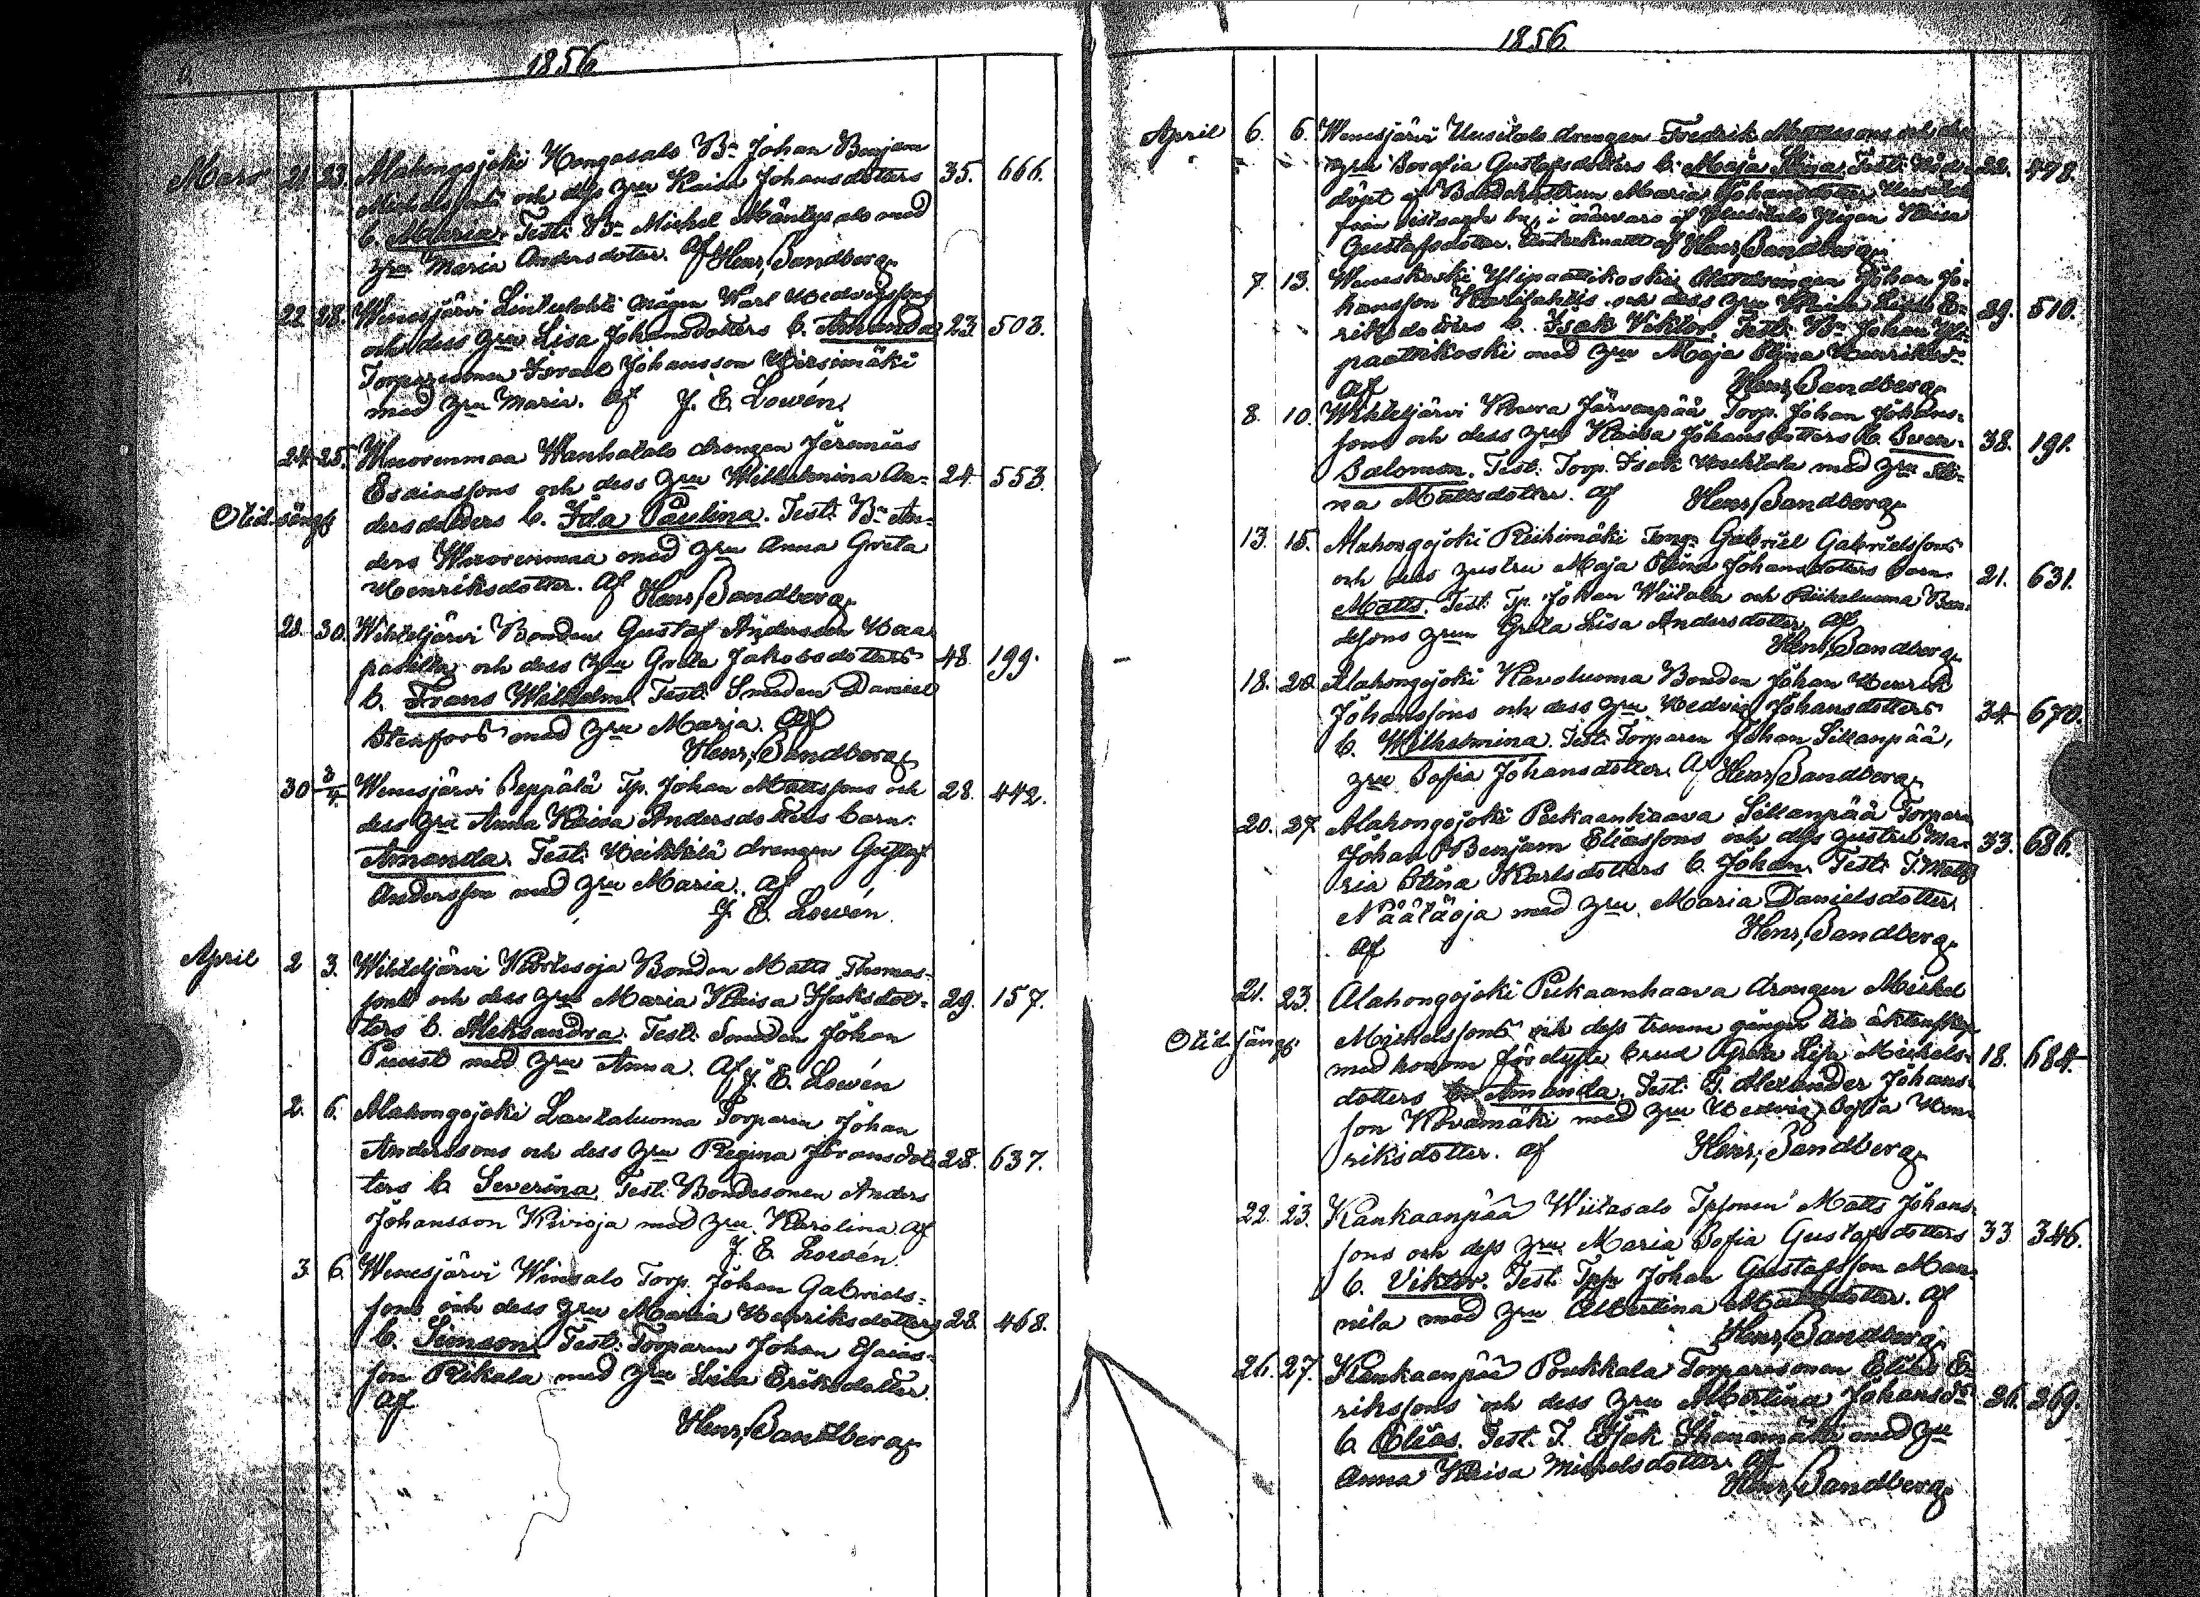 6.
1856
Mars 21. 23. Alahongojoki Hongasalo Bn Johan Benjam
och dess hru Kaisa Johansdotters 35. 666.
b. Maria. Test: Bn Michel Mäntysalo med
hru Maria Andersdoter. Af Henr, Sandberg
22. 28. Wenesjärvi Lintulahti
och dess hru Lisa Johansdotters b. Amanda 23. 503.
Torparesonen Israel Johansson Wirsimäki
med hru Maria. Af J. E. Lowén.
24. 25. Wuorenmaa Wanhatalo drengen Jeremias
Esaiassons och dess hru Wilhelmina An- 24. 553.
Otid. sängs
dersdotters b. Ida Paulina. Test: Bn An-
ders Wuorenmaa med hru Anna Greta
Henriksdotter. Af Henr, Sandberg
28. 30. Wihteljärvi Bonden Gustaf Andersson Haa-
och dess hru Greta Jakobsdotters 48. 199.
b. Frans Wilhelm. Test: Smeden Daniel
Stenfors med hru Marja. Af
Henr, Sandberg
30 Wenesjärvi Seppälä Tp. Johan Mattssons och 28. 442.
dess hru Anna Kaisa Andersdotters barn:
Amanda. Test: Heikkilä drengen Gustaf
Andersson med hru Maria. Af
J. E. Lowén.
April 2 3. Wihteljärvi Bonden Matts Thomas-
sons och dess hru Maria Kaisa Isaksdot- 29. 157.
ters b. Aleksandra. Test: Smeden Johan
Puust med hru Anna. Af J. E. Lowén
2. 6. Alahongojoki Lautaluoma Torparen Johan
Anderssons och dess hru Regina Jöransdot- 28. 637.
ters b. Severina. Test: Bondesonen Anders
Johansson Kivioja med hru Karolina. Af
J. E. Lowén.
3. 6. Wenesjärvi Torp. Johan Gabriels-
sons och dess hru Maria Henriksdotters 28. 468.
b. Simson. Test: Torparen Johan Esaias-
son Rikala med hru Lisa Eriksdotter.
Af
Henr, Sandberg
1856
April 6. 6. Wenesjärvi Uusitalo drengen Fredrik
hru Sorafia Gustafsdotters b. Maja Stina. Test: 22. 498.
döpt af Maria Johansdotter
i närvaro af Uusitalo Kaisa
Gustafsdotter. Af Henr, Sandberg
7. 13. Johan Jo-
hansson och dess hru Lisa E- 29. 510.
riksdotters b. Isak Viktor. Test: Bn Johan Yli-
paattikoski med hru Maja Stina Henriksdr
Af Henr, Sandberg
8. 10. Wihteljärvi Järvenpää Torp. Johan Johans-
sons och dess hru Kaisa Johansdotters b. Sven- 38. 191.
Salomon. Test: Torp. Isak med hru Sti-
na Mattsdotter. Af Henr, Sandberg
13. 15. Alahongojoki Riihimäki Gabriel Gabrielssons
och dess hustru Maja Stina Johansdotters barn 21. 631.
Matts. Test: Tp. Johan Wiitala och Riiheluoma Bon-
desons hru Greta Lisa Andersdotter. Af
Henr, Sandberg
18. 20. Alahongojoki Havoluoma Bonden Johan Henrik
Johanssons och dess hru Hedvig Johansdotters 34. 670.
b. Wilhelmina. Test: Torparen Johan Sillanpää,
hru Sofia Johansdotter. Af Henr, Sandberg
20. 27. Alahongojoki Sillanpää Torparn
Johan Benjam Eliassons och dess hustru Ma- 33. 686.
ria Stina Karlsdotters b. Johan. Test: T. Matts
Näätäoja med hru Maria Danielsdotter
Af Henr, Sandberg
21. 23. Alahongojoki drengen Michel
Otid. sängs.
Michelssons och dess trenne gånger till äktenskap
med honom brud Greta Lisa Michels- 18. 684.
dotters b. Amanda. Test: T. Alexander Johans-
son Kivamäki med hru Hedvig Sofia Hen-
riksdotter. Af Henr, Sandberg
22. 23. Kankaanpää Wiitasalo Tpsonen Matts Johans-
sons och dess hru Maria Sofia Gustafsdotters 33. 346.
b. Viktor. Test: Johan Gustafsson Man-
nila med hru Albertina Mattsdotter. Af
Henr, Sandberg
26. 27. Kankaanpää Poukkala Torparesonen Elias E-
rikssons och dess hru Albertina Johansdr 26. 269.
b. Elias. Test: T. Isak med hru
Anna Kaisa Michelsdotter. Af
Henr, Sandberg